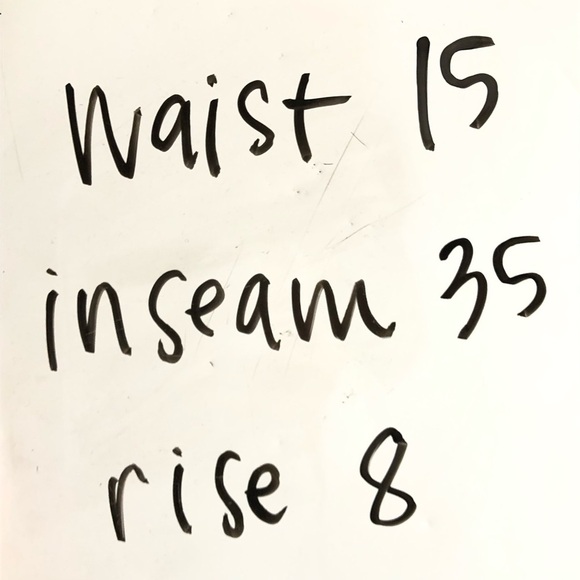 Waist 15
inseam 35
rise 8